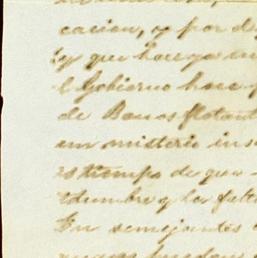 cacion, y por d
y que hace ya
el Gobierno hace
de Banos flotant
un misterio ins
es tiempo de que
dumbre y la falta
En semejantes